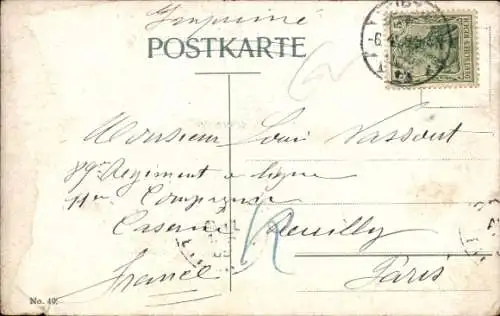 Imprimé
POSTKARTE
DEUTSCHES REICH
Monsieur Loui Vassout
89e Regiment a ligne
11e Compagnie
Caserne Reuilly
Paris
France
No. 49.